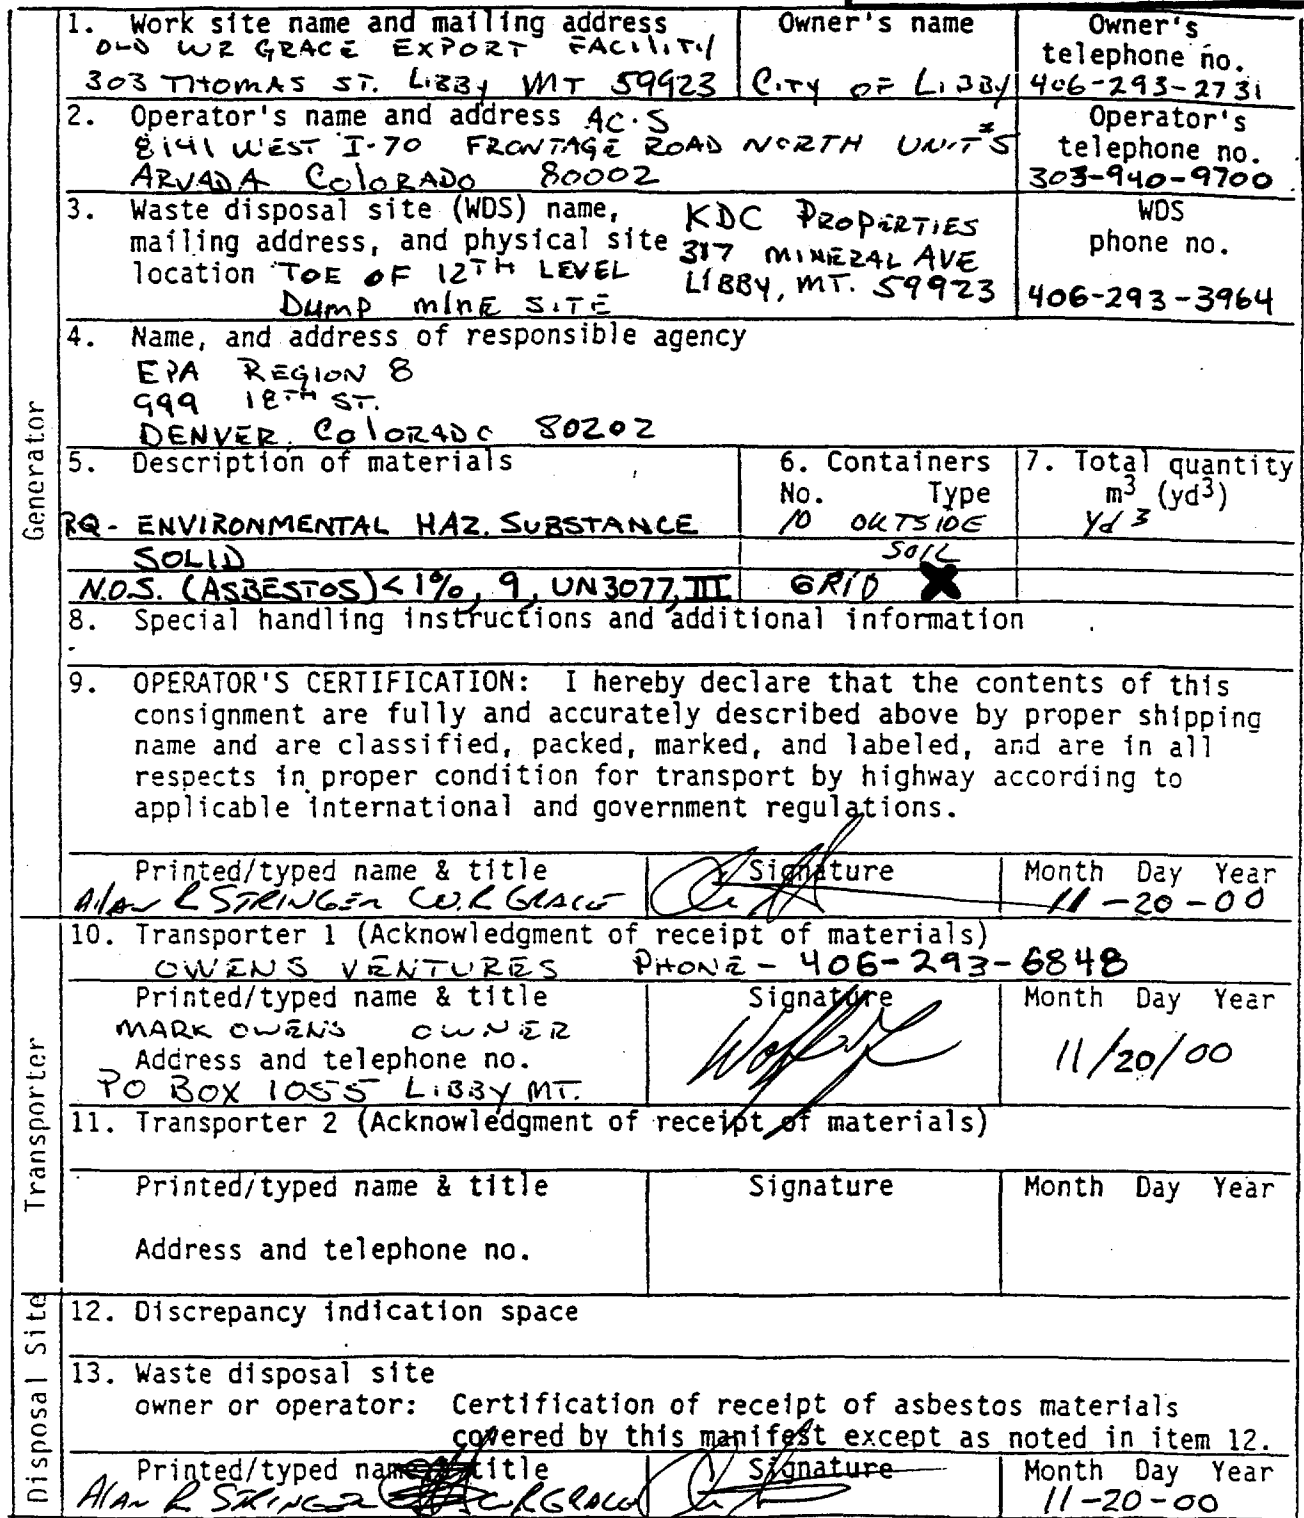 Generator
1. Work site name and mailing address
OLD WR GRACE EXPORT FACILITY
303 THOMAS ST. LIBBY MT 59923
Owner's name
CITY OF LIBBY
Owner's
telephone no.
406-293-2731
2. Operator's name and address AC·S
8141 WEST I-70 FRONTAGE ROAD NORTH UNIT #5
ARVADA COLORADO 80002
Operator's
telephone no.
303-940-9700
3. Waste disposal site (WDS) name,
mailing address, and physical site
location TOE OF 12TH LEVEL
DUMP MINE SITE
KDC PROPERTIES
317 MINERAL AVE
LIBBY, MT. 59923
WDS
phone no.
406-293-3964
4. Name, and address of responsible agency
EPA REGION 8
999 18TH ST.
DENVER, COLORADO 80202
5. Description of materials
RQ - ENVIRONMENTAL HAZ. SUBSTANCE
SOLID
N.O.S. (ASBESTOS) <1%, 9, UN3077, III
6. Containers
No. Type
10 OUTSIDE
SOIL
GRID
7. Total quantity
m3 (yd3)
Yd 3
8. Special handling instructions and additional information
9. OPERATOR'S CERTIFICATION: I hereby declare that the contents of this
consignment are fully and accurately described above by proper shipping
name and are classified, packed, marked, and labeled, and are in all
respects in proper condition for transport by highway according to
applicable international and government regulations.
Printed/typed name & title
Alan R STRINGER W.R GRACE
Signature
Month Day Year
11-20-00
Transporter
10. Transporter 1 (Acknowledgment of receipt of materials)
OWENS VENTURES PHONE - 406-293-6848
Printed/typed name & title
MARK OWENS OWNER
Address and telephone no.
PO BOX 1055 LIBBY MT.
Signature
Month Day Year
11/20/00
11. Transporter 2 (Acknowledgment of receipt of materials)
Printed/typed name & title
Address and telephone no.
Signature
Month Day Year
Disposal Site
12. Discrepancy indication space
13. Waste disposal site
owner or operator: Certification of receipt of asbestos materials
covered by this manifest except as noted in item 12.
Printed/typed name title
Alan R STRINGER W.R GRACE
Signature
Month Day Year
11-20-00